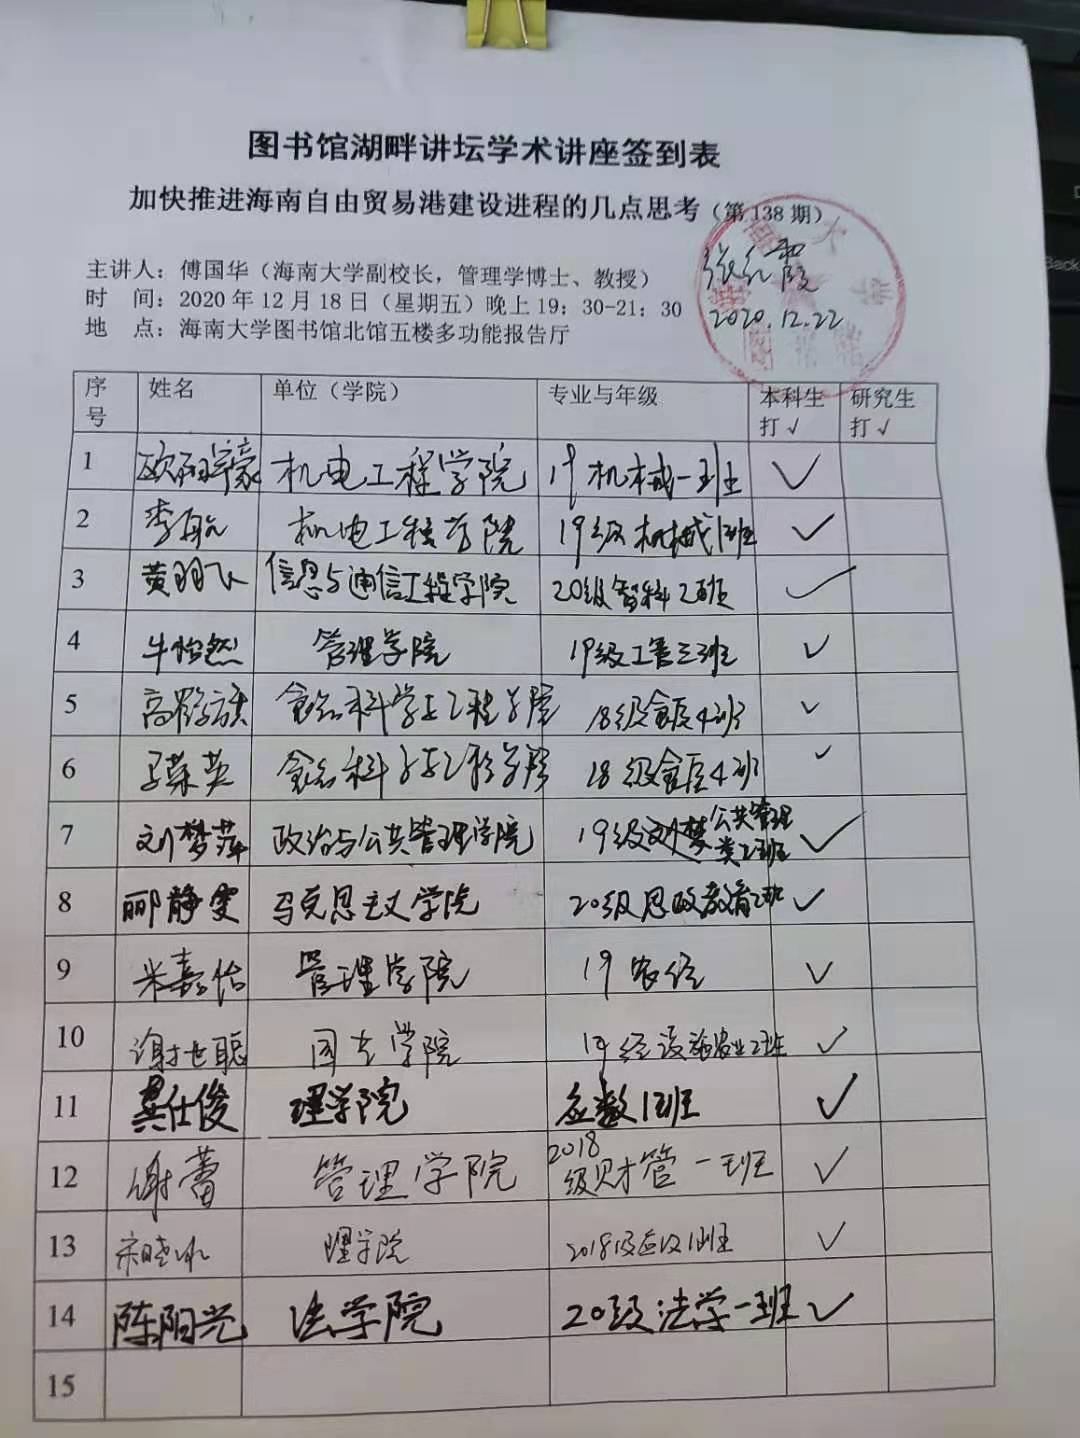 图书馆湖畔讲坛学术讲座签到表
加快推进海南自由贸易港建设进程的几点思考（第138期）
主讲人：傅国华（海南大学副校长，管理学博士、教授）
时 间：2020年12月18日（星期五）晚上19：30-21：30
地 点：海南大学图书馆北馆五楼多功能报告厅
2020.12.22
序号 姓名 单位（学院） 专业与年级 本科生打√ 研究生打√
1 欧阳宇豪 机电工程学院 19机械一班 ✓
2 李航 机电工程学院 19级机械1班 ✓
3 黄羽飞 信息与通信工程学院 20级智科2班 ✓
4 牛怡然 管理学院 19级工管三班 ✓
5 高 族 食品科学与工程学院 18级食质4班 ✓
6 马荣英 食品科学与工程学院 18级食质4班 ✓
7 刘梦萍 政治与公共管理学院 19级 公共管理类2班 ✓
8 郦静雯 马克思主义学院 20级思政教育2班 ✓
9 米嘉怡 管理学院 19农经 ✓
10 谢世聪 园艺学院 19级设施农业2班 ✓
11 龚仕俊 理学院 应数1班 ✓
12 谢蕾 管理学院 2018级财管一班 ✓
13 宋晓冰 理学院 2018级应数1班 ✓
14 陈阳光 法学院 20级法学一班 ✓
15